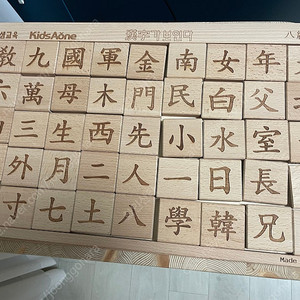 생교육 KidsAone 漢字가보인다 八
教九國軍金南女年
六萬母木門民白父
三生西先小水室
外月二人一日長
寸七土八學韓兄
Made